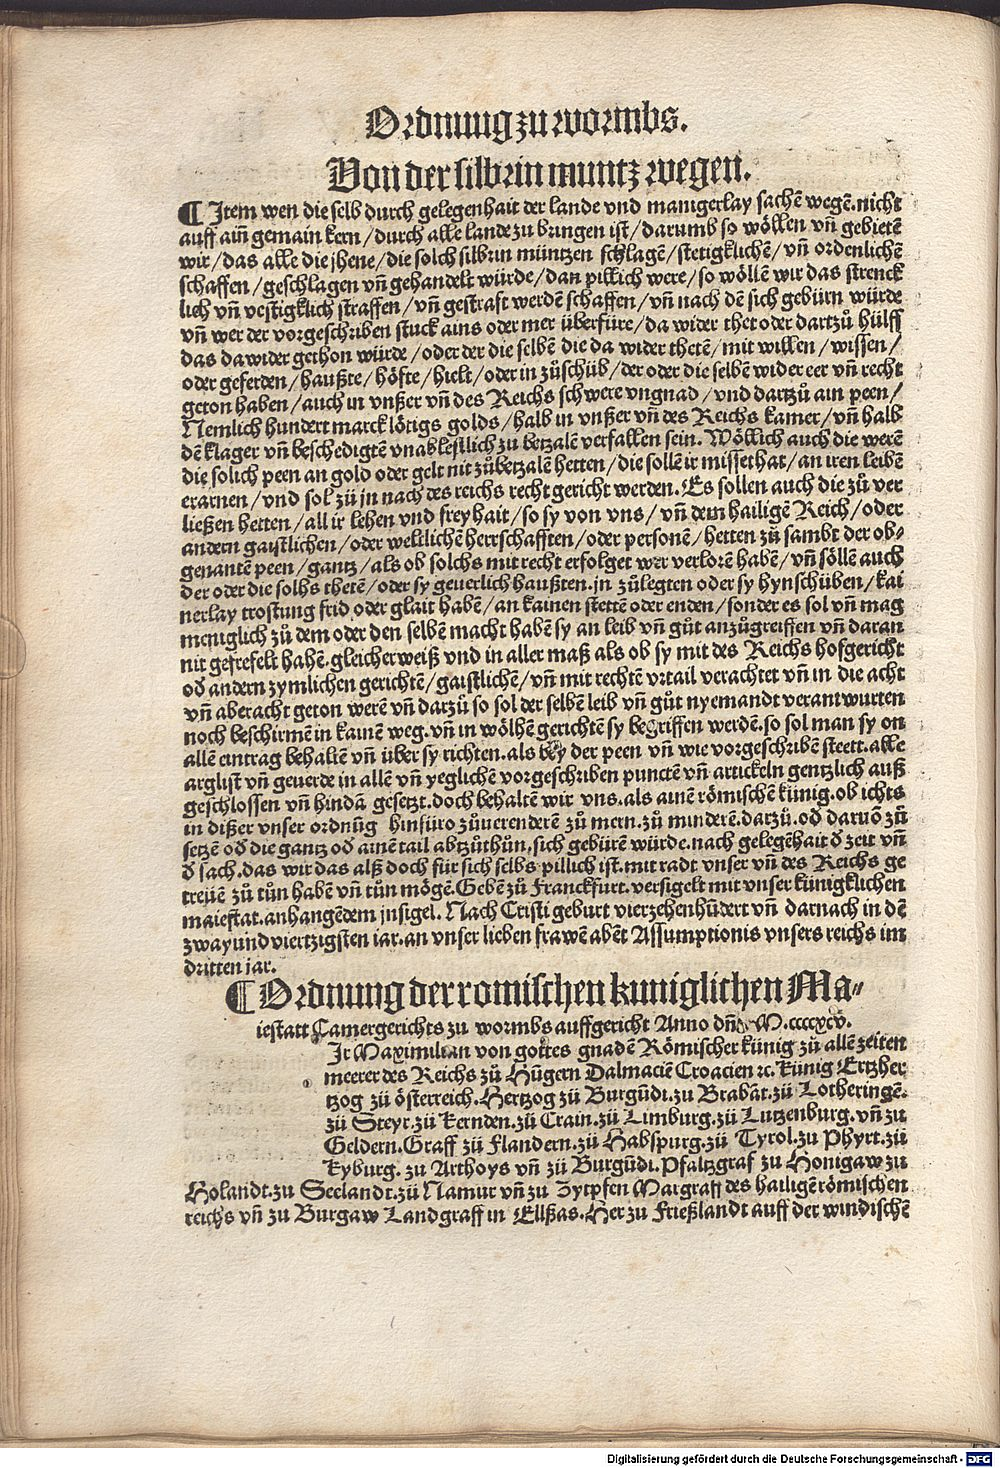 Ordnung zu wormbs.
Von der silbrin muntz wegen.
¶ Item wen die selb durch gelegenhait der lande vnd manigerlay sachē wegē. nicht
auff ain gemain kern / durch alle lande zu bringen ist / darumb so wöllen vn̄ gebietē
wir / das alle die jhene / die solch silbrin müntzen schlagē / stetigklichē / vn̄ ordenlichē
schaffen / geschlagen vn̄ gehandelt würde / dan pillich were / so wöllē wir das strenck
lich vn̄ vestigklich straffen / vn̄ gestraft werdē schaffen / vn̄ nach dē sich gebürn würde
vn̄ wer der vorgeschriben stuck ains oder mer überfüre / da wider thet oder dartzů hülff
das dawider gethon würde / oder der die selbē die da wider thetē / mit willen / wissen /
oder geferden / haußte / höfte / hielt / oder in zůschüb / der oder die selbē wider eer vn̄ recht
geton haben / auch in vnßer vn̄ des Reichs schwere vngnad / vnd dartzů ain peen /
Nemlich hundert marck lötigs golds / halb in vnßer vn̄ des Reichs kamer / vn̄ halb
dē klager vn̄ beschedigtē vnableßlich zu betzalē verfallen sein. Wöllich auch die werē
die solich peen an gold oder gelt nit zůbetzalē hetten / die sollē ir missethat / an iren leibē
erarnen / vnd sol zü jn nach des reichs recht gericht werden. Es sollen auch die zů ver
ließen hetten / all ir lehen vnd freyhait / so sy von vns / vn̄ dem hailigē Reich / oder
andern gaistlichen / oder weltlichen herrschafften / oder personē / hetten zü sambt der ob-
genantē peen / gantz / als ob solchs mit recht erfolget wer verlorē haben / vn̄ söllē auch
der oder die solhs thetē / oder sy geuerlich haußten. jn zůlegten oder sy hynschüben / kai
nerlay trostung frid oder glait habē / an kainen stettē oder enden / sonder es sol vn̄ mag
meniglich zů dem oder den selbē macht habē sy an leib vn̄ gůt anzůgreiffen vn̄ daran
nit gefrefelt habē. gleicherweiß vnd in aller maß als ob sy mit des Reichs hofgericht
od̄ andern zymlichen gerichtē / gaistlichē / vn̄ mit rechtē vrtail verachtet vn̄ in die acht
vn̄ aberacht geton werē vn̄ darzů so sol der selbē leib vn̄ gůt nyemandt verantwurten
noch beschirmē in kainē weg. vn̄ in wölhē gerichtē sy begriffen werdē. so sol man sy on
allē eintrag behaltē vn̄ über sy richten. als bey der peen vn̄ wie vorgeschribē steett. alle
arglist vn̄ geuerde in allē vn̄ yeglichē vorgeschriben punctē vn̄ artickeln gentzlich auß
geschlossen vn̄ hindā gesetzt. doch behaltē wir vns. als ainē römischē künig. ob ichts
in dißer vnser ordnūg hinfüro zůuerenderē zů mern. zů minderē. darzů. od̄ daruō zů
setzē od̄ die gantz od̄ ainē tail abtzůthůn. sich gebürē würde. nach gelegēhait d̄ zeit vn̄
d̄ sach. das wir das alß doch für sich selbs pillich ist. mit radt vnser vn̄ des Reichs ge
treüē zů tůn habē vn̄ tůn mögē. Gebē zů Franckfurt. versigelt mit vnser künigklichen
maiestat. anhangēdem jnsigel. Nach Cristi geburt vierzehenhūdert vn̄ darnach in dē
zway und viertzigsten iar. an vnser lieben frawē abēt Assumptionis vnsers reichs im
dritten jar.
¶ Ordnung der romischen kuniglichen Ma-
iestatt Camergerichts zu wormbs auffgericht Anno dn̄i. M.ccccxcv.
Ir Maximilian von gottes gnadē Römischer künig zů allē zeiten
meerer des Reichs zů Hūgern Dalmaciē Croacien ꝛc. künig Ertzher
tzog zü österreich. Hertzog zu Burgūdi. zu Brabāt. zü Lotheringē.
zü Steyr. zü Kernden. zü Crain. zü Limburg. zü Lutzenburg. vn̄ zu
Geldern. Graff zü Flandern. zü Habspurg. zü Tyrol. zu Phyrt. zü
Kyburg. zu Arthoys vn̄ zü Burgūdi. Pfaltzgraf zu Honigaw zu
Holandt. zu Seelandt. zü Namur vn̄ zu Zytpfen Margraff des hailigē römischen
reichs vn̄ zu Burgaw Landgraff in Ellßas. Her zu Frießlandt auff der windischē
Digitalisierung gefördert durch die Deutsche Forschungsgemeinschaft - DFG